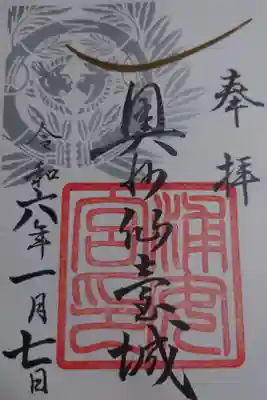 奉拝
奥州仙臺城
令和六年一月七日